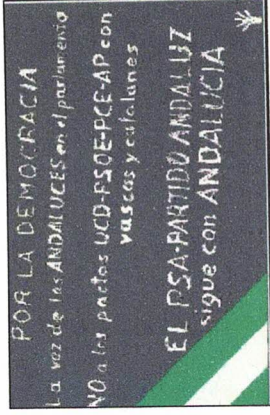 POR LA DEMOCRACIA
La voz de los ANDALUCES en el parlamento
NO a los pactos UCD-PSOE-PCE-AP con
vascos y catalanes
EL PSA-PARTIDO ANDALUZ
sigue con ANDALUCIA